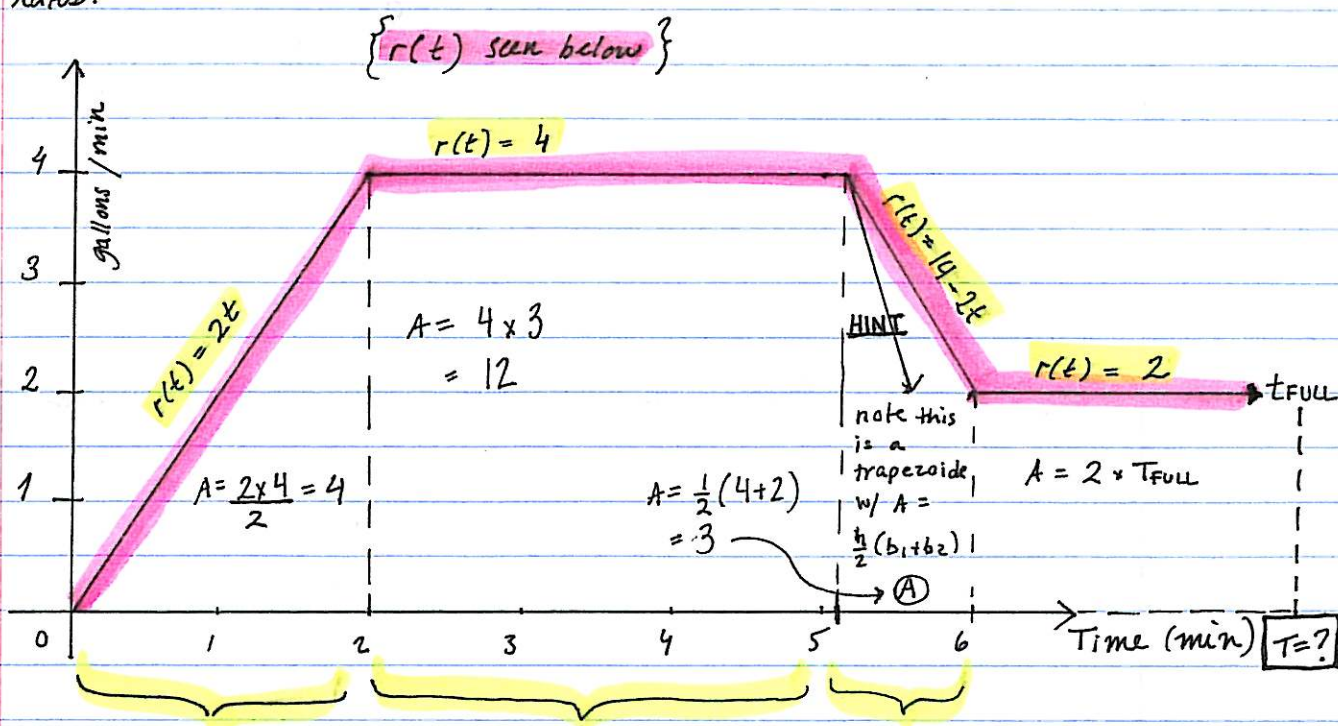 {r(t) seen below}
gallons/min
4
3
2
1
0
r(t) = 2t
r(t) = 4
r(t) = 14-2t
r(t) = 2
tFULL
A = 4 x 3
= 12
A = 2x4/2 = 4
A = 1/2 (4+2)
= 3
HINT
note this
is a
trapezoide
w/ A =
h/2 (b1+b2)
A
A = 2 x TFULL
1
2
3
4
5
6
Time (min)
T=?